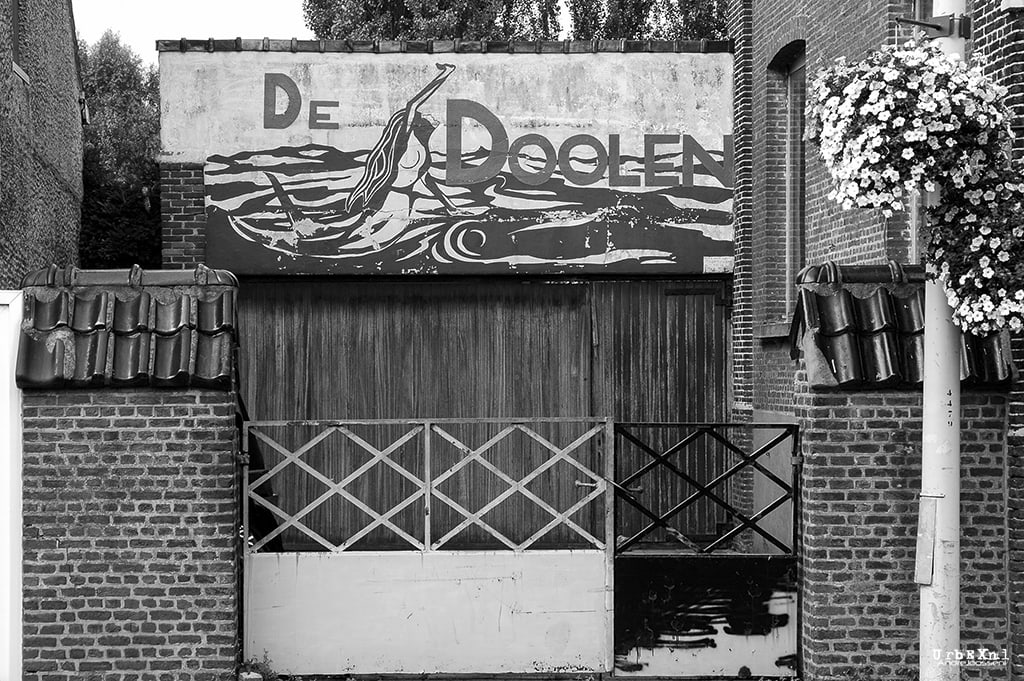 De Doolen
4479
UrbEXnl
AndreJoosseni